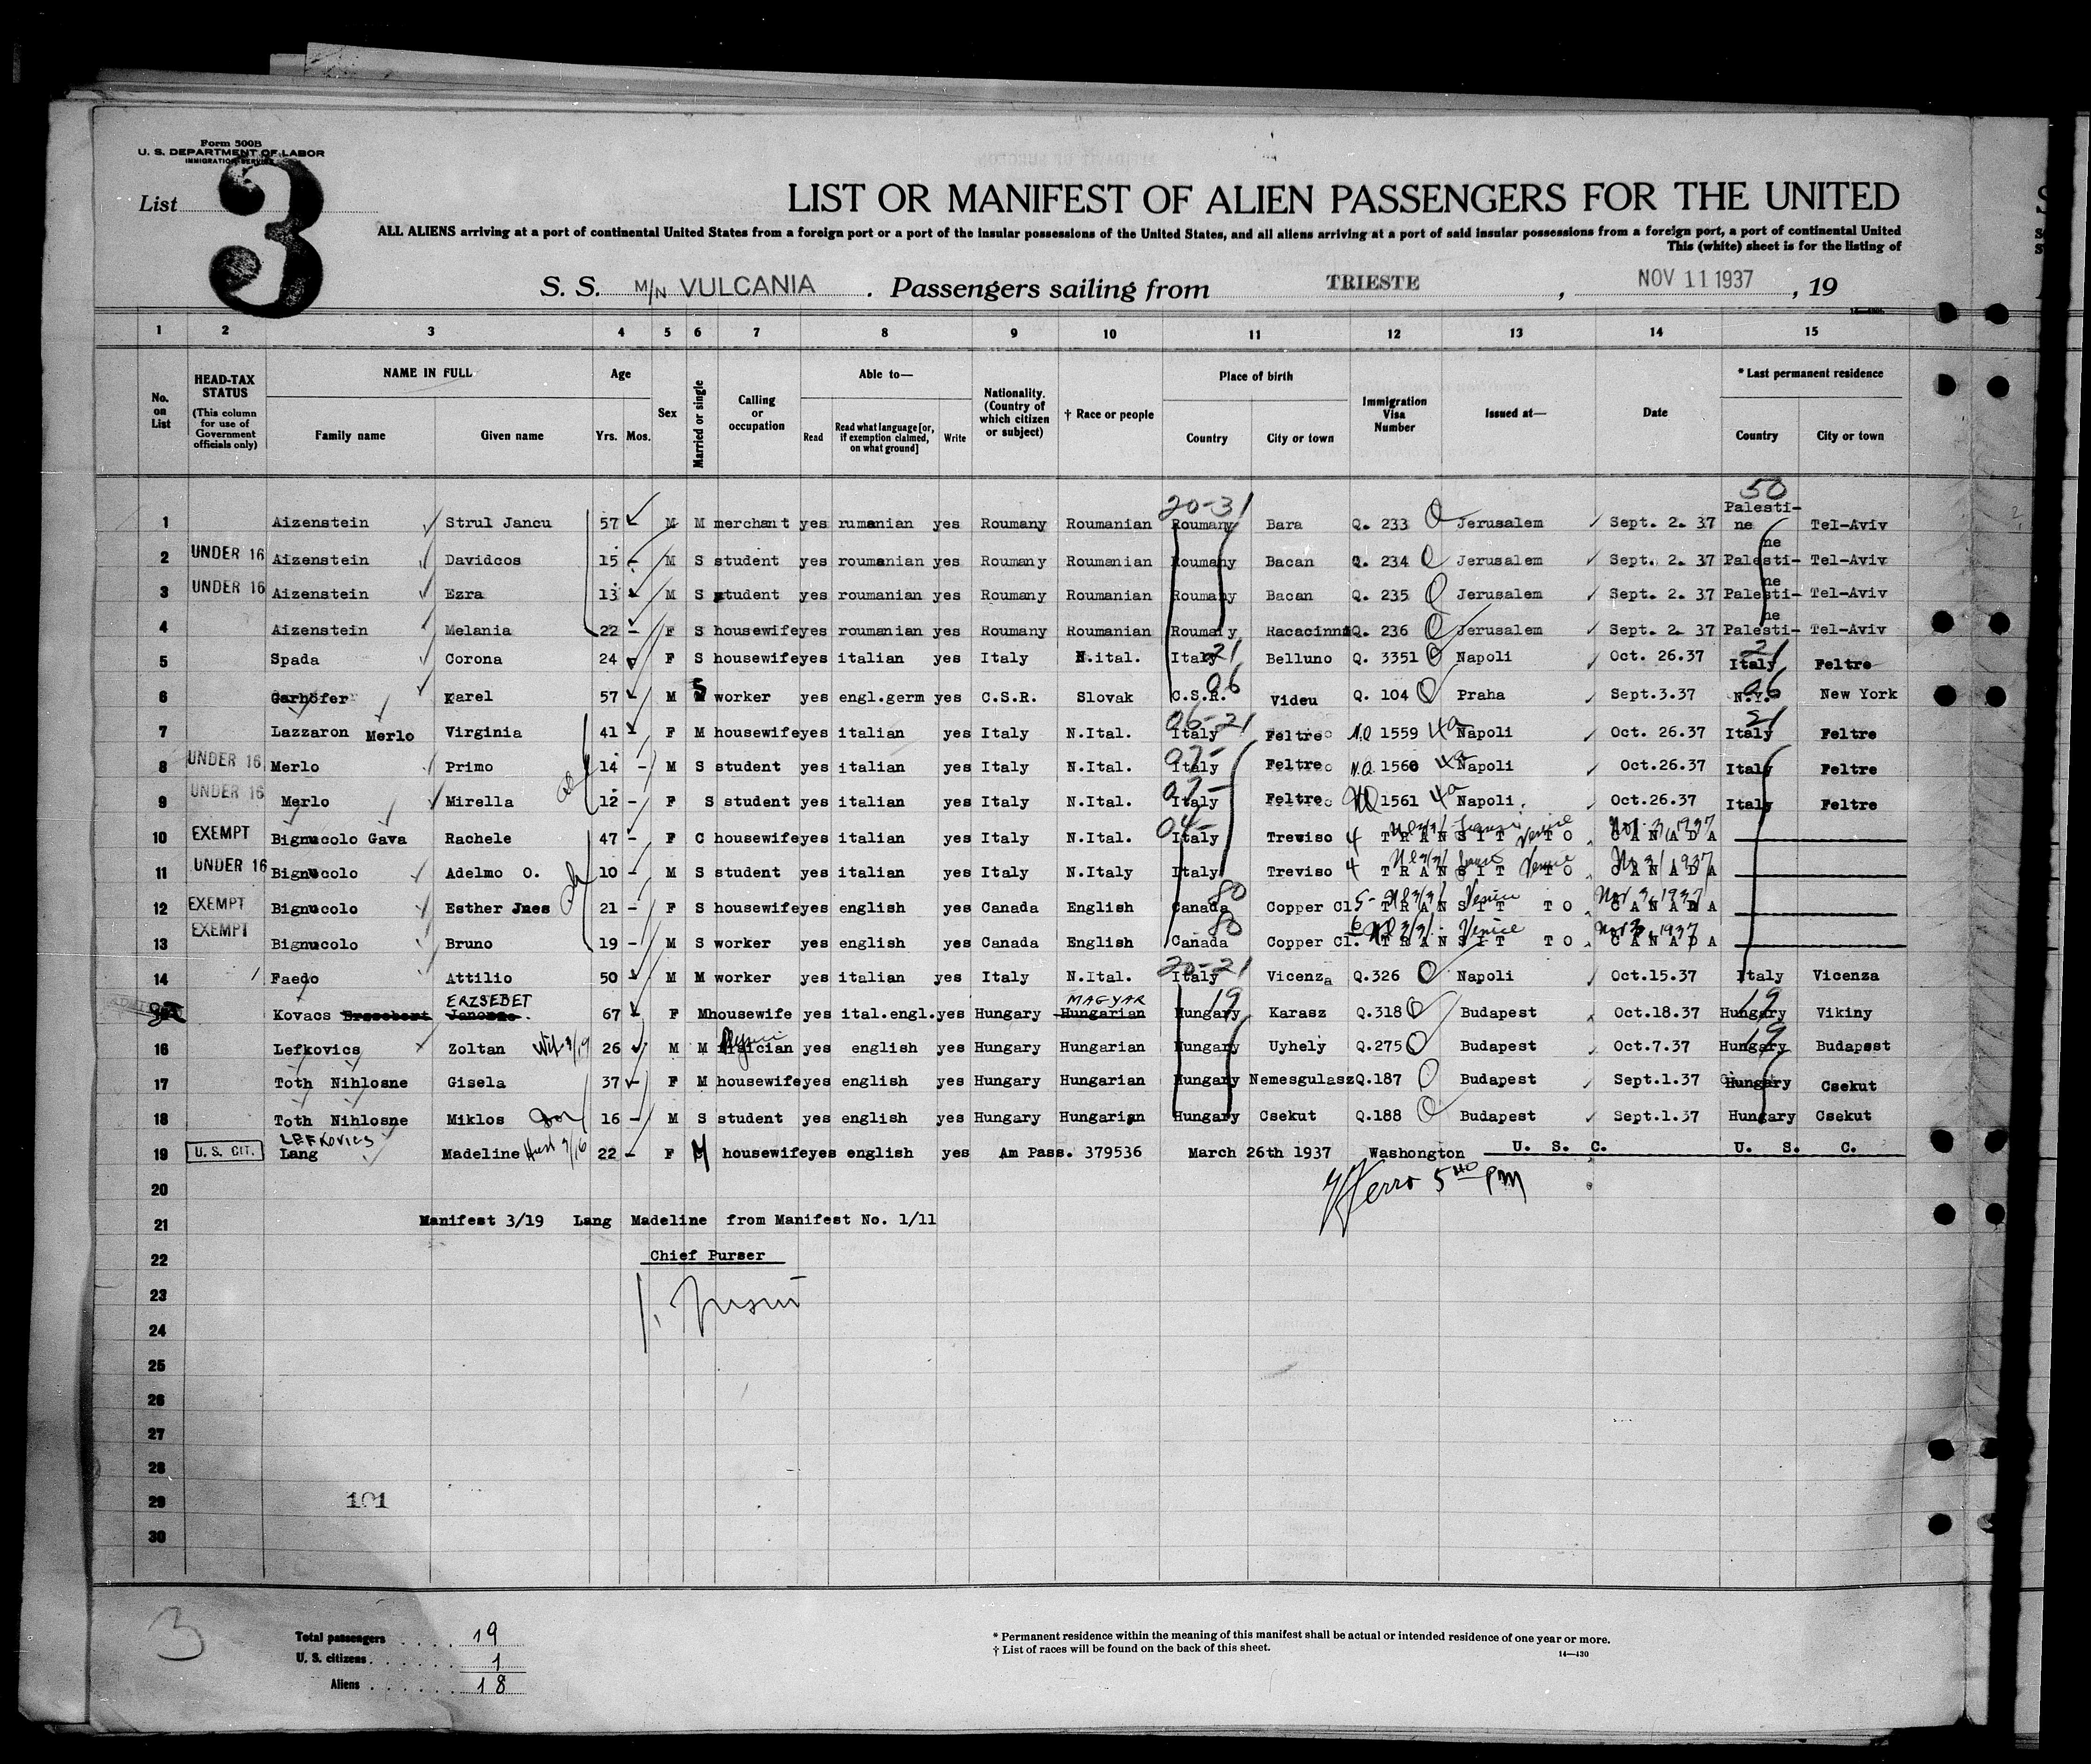 Form 500B
U. S. DEPARTMENT OF LABOR
IMMIGRATION SERVICE
List 3
LIST OR MANIFEST OF ALIEN PASSENGERS FOR THE UNITED
ALL ALIENS arriving at a port of continental United States from a foreign port or a port of the insular possessions of the United States, and all aliens arriving at a port of said insular possessions from a foreign port, a port of continental United
This (white) sheet is for the listing of
S. S. M/N VULCANIA . Passengers sailing from TRIESTE , NOV 11 1937 , 19
1 2 3 4 5 6 7 8 9 10 11 12 13 14 15
No. on List
HEAD-TAX STATUS (This column for use of Government officials only)
NAME IN FULL
Family name Given name
Age
Yrs. Mos.
Sex
Married or single
Calling or occupation
Able to—
Read Read what language [or, if exemption claimed, on what ground] Write
Nationality. (Country of which citizen or subject)
† Race or people
Place of birth
Country City or town
Immigration Visa Number
Issued at—
Date
* Last permanent residence
Country City or town
20-31 50
1 Aizenstein Strul Jancu 57 M M merchant yes rumanian yes Roumany Roumanian Roumany Bara Q. 233 Jerusalem Sept. 2. 37 Palesti-ne Tel-Aviv
2 UNDER 16 Aizenstein Davidcos 15 M S student yes roumanian yes Roumany Roumanian Roumany Bacan Q. 234 Jerusalem Sept. 2. 37 Palesti-ne Tel-Aviv
3 UNDER 16 Aizenstein Ezra 13 M S student yes roumanian yes Roumany Roumanian Roumany Bacan Q. 235 Jerusalem Sept. 2. 37 Palesti-ne Tel-Aviv
4 Aizenstein Melania 22 F S housewife yes roumanian yes Roumany Roumanian Roumany Racacinni Q. 236 Jerusalem Sept. 2. 37 Palesti-ne Tel-Aviv
5 Spada Corona 24 F S housewife yes italian yes Italy N.ital. Italy 21 Belluno Q. 3351 Napoli Oct. 26.37 Italy 21 Feltre
6 Garhöfer Karel 57 M S worker yes engl.germ yes C.S.R. Slovak C.S.R. 06 Videu Q. 104 Praha Sept.3.37 N.Y. 06 New York
7 Lazzaron Merlo Virginia 41 F M housewife yes italian yes Italy N.Ital. Italy 06-21 Feltre N.Q 1559 4a Napoli Oct. 26.37 Italy 21 Feltre
8 UNDER 16 Merlo Primo 14 M S student yes italian yes Italy N.Ital. Italy Feltre N.Q. 1560 4a Napoli Oct.26.37 Italy Feltre
9 UNDER 16 Merlo Mirella 12 F S student yes italian yes Italy N.Ital. Italy Feltre NQ 1561 4a Napoli. Oct.26.37 Italy Feltre
10 EXEMPT Bignucolo Gava Rachele 47 F C housewife yes italian yes Italy N.Ital. Italy Treviso 4 TRANSIT Venice TO CANADA
11 UNDER 16 Bignucolo Adelmo O. 10 M S student yes italian yes Italy N.Italy Italy Treviso 4 TRANSIT Venice TO CANADA
12 EXEMPT Bignucolo Esther Jnes 21 F S housewife yes english yes Canada English Canada 80 Copper Cl. TRANSIT Venice TO CANADA Nov 3, 1937
13 EXEMPT Bignucolo Bruno 19 M S worker yes english yes Canada English Canada 80 Copper Cl. TRANSIT Venice TO CANADA Nov 3, 1937
14 Faedo Attilio 50 M M worker yes italian yes Italy N.Ital. Italy 20-21 Vicenza Q.326 Napoli Oct.15.37 Italy Vicenza
Kovacs ERZSEBET 67 F M housewife yes ital.engl. yes Hungary MAGYAR Hungarian Hungary 19 Karasz Q.318 Budapest Oct.18.37 Hungary 19 Vikiny
16 Lefkovics Zoltan Wif 3/19 26 M M yes english yes Hungary Hungarian Hungary Uyhely Q.275 Budapest Oct.7.37 Hungary 19 Budapest
17 Toth Nihlosne Gisela 37 F M housewife yes english yes Hungary Hungarian Hungary Nemesgulasz Q.187 Budapest Sept.1.37 Hungary Csekut
18 Toth Nihlosne Miklos Son 16 M S student yes english yes Hungary Hungarian Hungary Csekut Q.188 Budapest Sept.1.37 Hungary Csekut
19 U. S. CIT. LEFKOVICS Lang Madeline Husb 3/16 22 F M housewife yes english yes Am Pass. 379536 March 26th 1937 Washongton U. S. C. U. S. C.
20 5 40 PM
21 Manifest 3/19 Lang Madeline from Manifest No. 1/11
22 Chief Purser
23
24
25
26
27
28
29 101
30
3
Total passengers 19
U. S. citizens 1
Aliens 18
* Permanent residence within the meaning of this manifest shall be actual or intended residence of one year or more.
† List of races will be found on the back of this sheet.
14—430